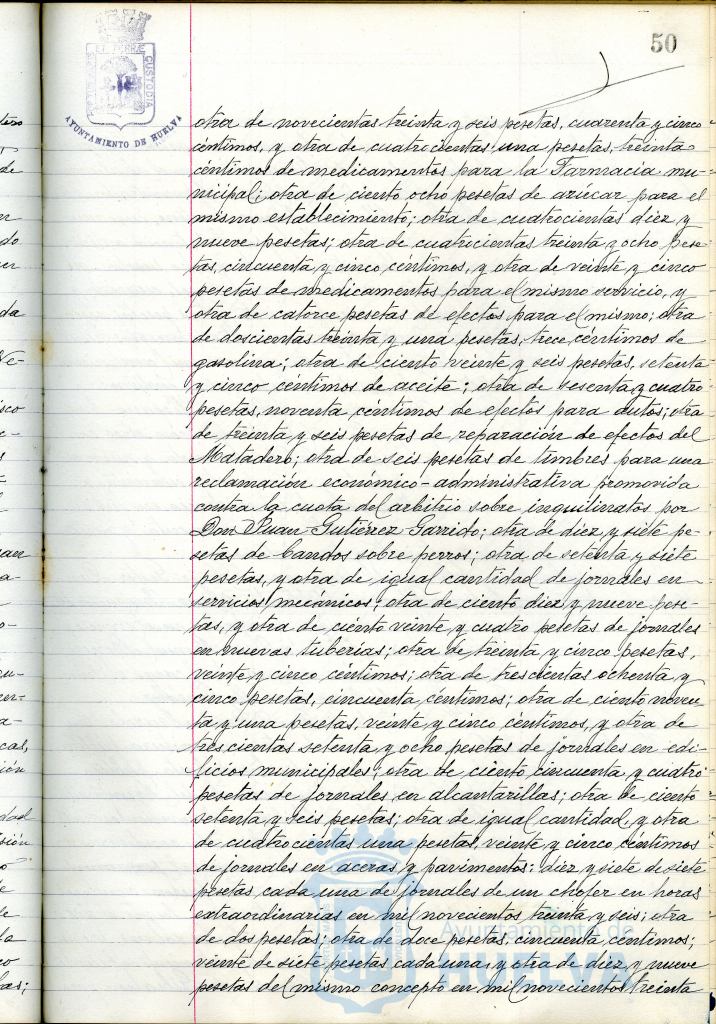 50
PORTUS MARIS
ET TERRAE
CUSTODIA
AYUNTAMIENTO DE HUELVA
otra de novecientas treinta y seis pesetas, cuarenta y cinco
céntimos, y otra de cuatrocientas una pesetas, treinta
céntimos de medicamentos para la Farmacia mu-
nicipal; otra de ciento ocho pesetas de azúcar para el
mismo establecimiento; otra de cuatrocientas diez y
nueve pesetas; otra de cuatrocientas treinta y ocho pese-
tas, cincuenta y cinco céntimos, y otra de veinte y cinco
pesetas de medicamentos para el mismo servicio, y
otra de catorce pesetas de efectos para el mismo; otra
de doscientas treinta y una pesetas, trece céntimos de
gasolina; otra de ciento veinte y seis pesetas, setenta
y cinco céntimos de aceite; otra de sesenta y cuatro
pesetas, noventa céntimos de efectos para autos; otra
de treinta y seis pesetas de reparación de efectos del
Matadero; otra de seis pesetas de timbres para una
reclamación económico-administrativa promovida
contra la cuota del arbitrio sobre inquilinatos por
Don Juan Gutiérrez Garrido; otra de diez y siete pe-
setas de bandos sobre perros; otra de setenta y siete
pesetas, y otra de igual cantidad de jornales en
servicios mecánicos; otra de ciento diez y nueve pese-
tas, y otra de ciento veinte y cuatro pesetas de jornales
en nuevas tuberías; otra de treinta y cinco pesetas,
veinte y cinco céntimos; otra de trescientas ochenta y
cinco pesetas, cincuenta céntimos; otra de ciento noven-
ta y una pesetas, veinte y cinco céntimos, y otra de
trescientas setenta y ocho pesetas de jornales en edi-
ficios municipales; otra de ciento cincuenta y cuatro
pesetas de jornales en alcantarillas; otra de ciento
setenta y seis pesetas; otra de igual cantidad, y otra
de cuatrocientas una pesetas, veinte y cinco céntimos
de jornales en aceras y pavimentos; diez y siete de siete
pesetas cada una de jornales de un chofer en horas
extraordinarias en mil novecientos treinta y seis; otra
de dos pesetas; otra de doce pesetas, cincuenta céntimos;
veinte de siete pesetas cada una, y otra de diez y nueve
pesetas del mismo concepto en mil novecientos treinta
Ayuntamiento de
HUELVA